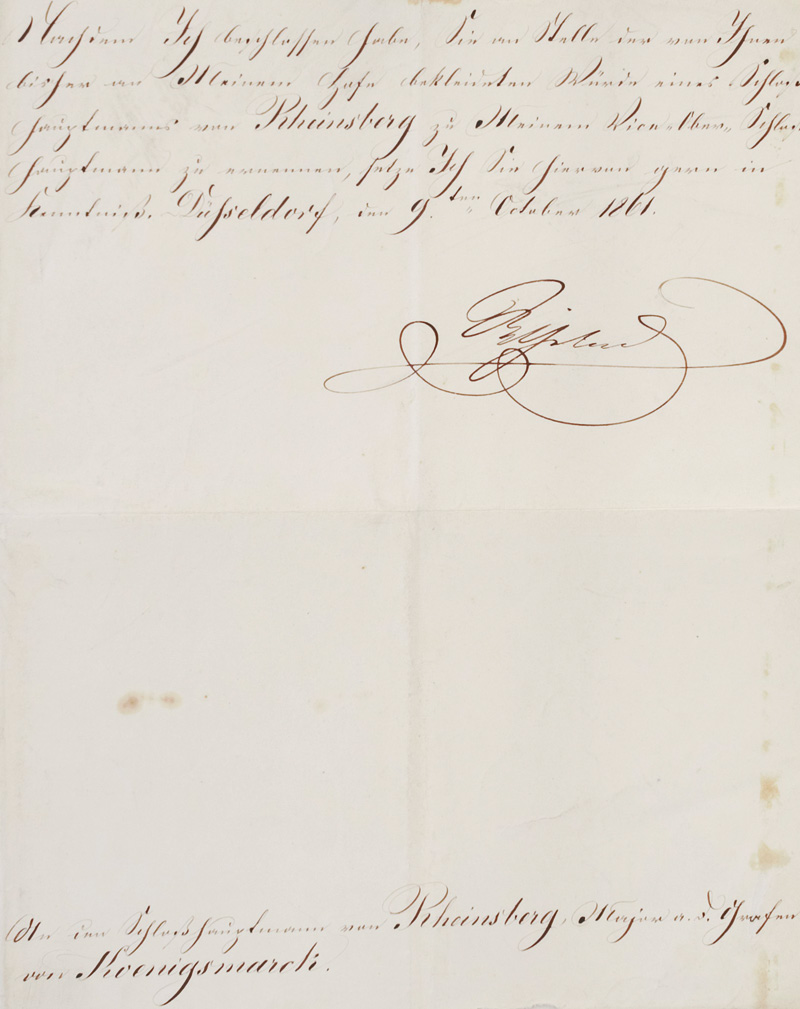 Nachdem Ich beschlossen habe, Sie an Stelle der von Ihnen
bisher an Meinem Hofe bekleideten Würde eines Schloß-
hauptmanns von Rheinsberg zu Meinem Vice-Ober-Schloß-
hauptmann zu ernennen, setze Ich Sie hiervon gern in
Kenntniß. Düsseldorf, den 9.ten October 1861.
An den Schloßhauptmann von Rheinsberg, Major a. D. Grafen
von Koenigsmarck.